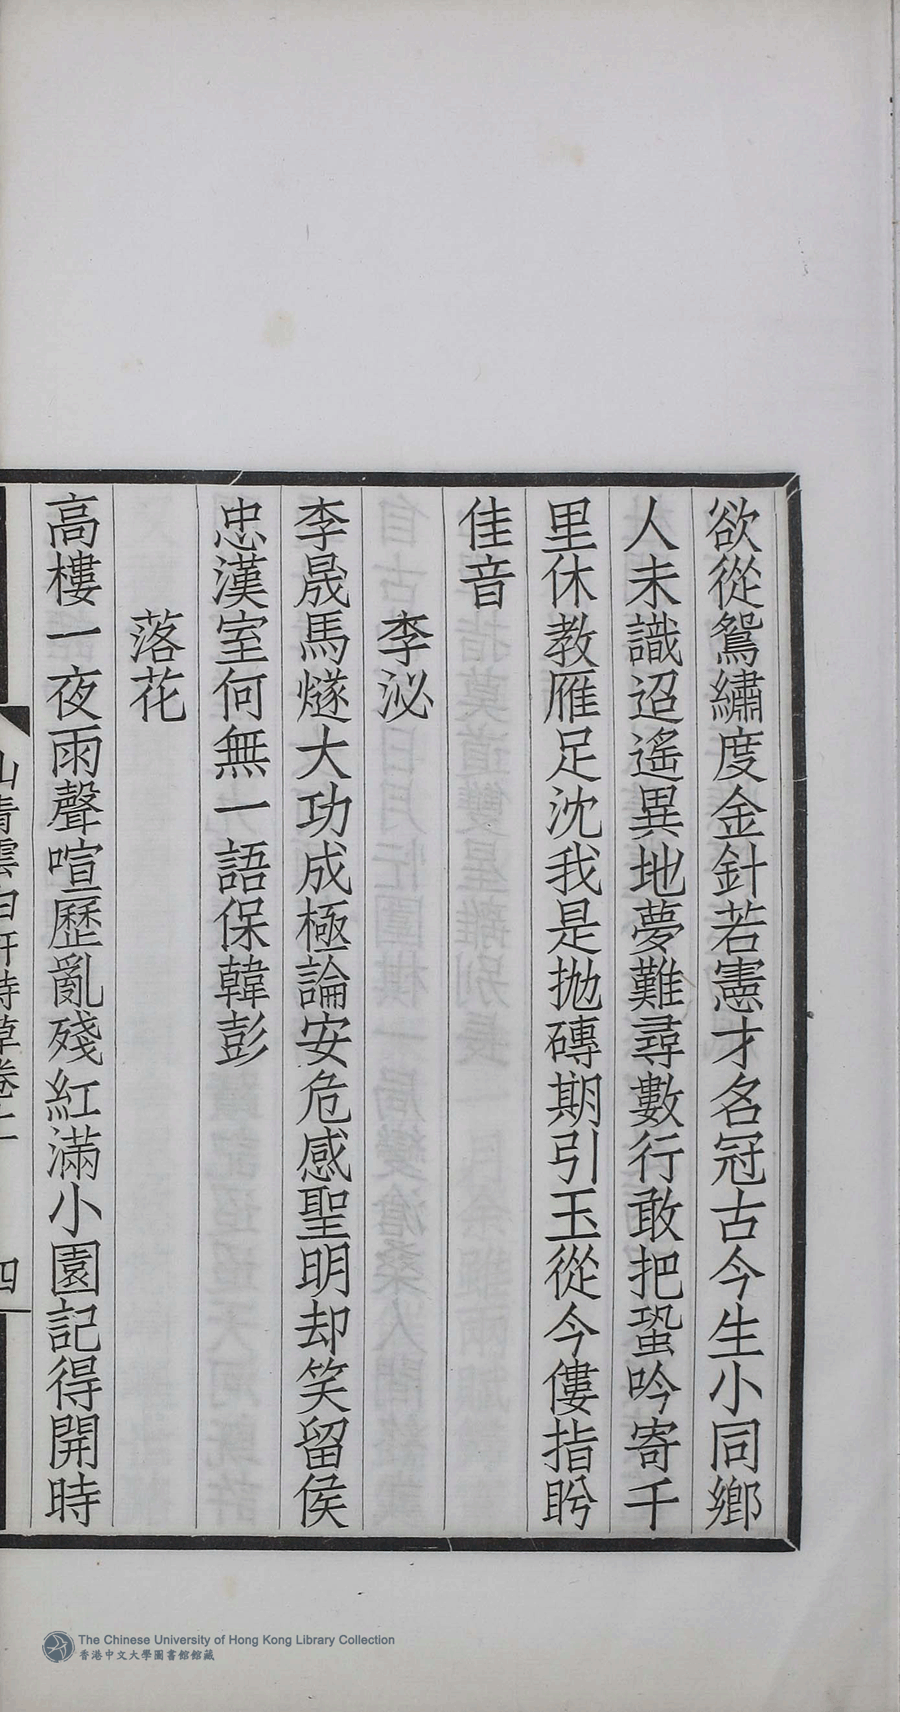 欲從鴛繡度金針若憲才名冠古今生小同鄉
人未識迢遙異地夢難尋數行敢把蛩吟寄千
里休教雁足沈我是拋磚期引玉從今僂指盻
佳音
李泌
李晟馬燧大功成極論安危感聖明却笑留侯
忠漢室何無一語保韓彭
落花
高樓一夜雨聲喧歷亂殘紅滿小園記得開時
山青雲白軒詩草卷上 四
The Chinese University of Hong Kong Library Collection
香港中文大學圖書館館藏